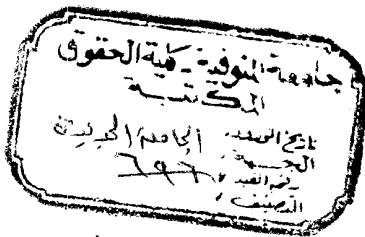 جامعة المنوفية - كلية الحقوق
المكتبة
تاريخ الورود:
الجهة: الجامعة الحديثة
رقم القيد: ٦٩٦
التصنيف: